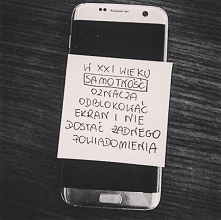 W XXI WIEKU
SAMOTNOŚĆ
OZNACZA
ODBLOKOWAĆ
EKRAN I NIE
DOSTAĆ ŻADNEGO
POWIADOMIENIA